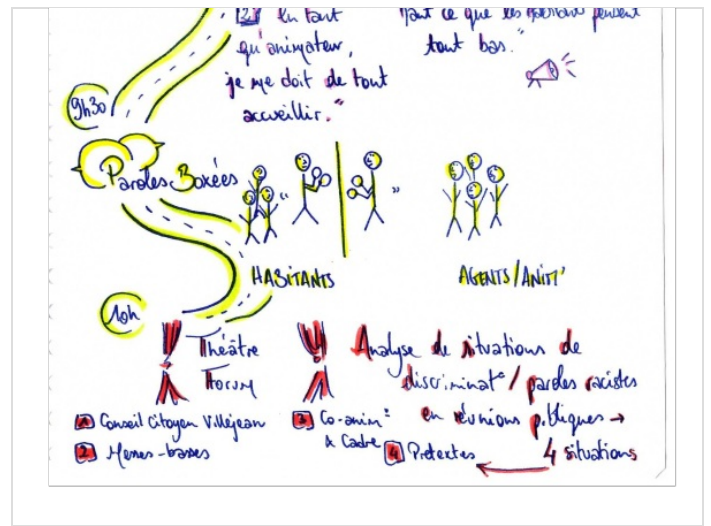 2 " En tant
qu'animateur,
je me doit de tout
accueillir."
haut ce que les pensent
tout bas."
9h30
Paroles Boxées
" "
HABITANTS
AGENTS/ANIM°
10h
Théâtre
Forum
Analyse de situations de
discriminat° / paroles racistes
en réunions publiques →
4 situations
1 Conseil Citoyen Villejean
2 Messes-basses
3 Co-anim°
& Cadre
4 Pretextes